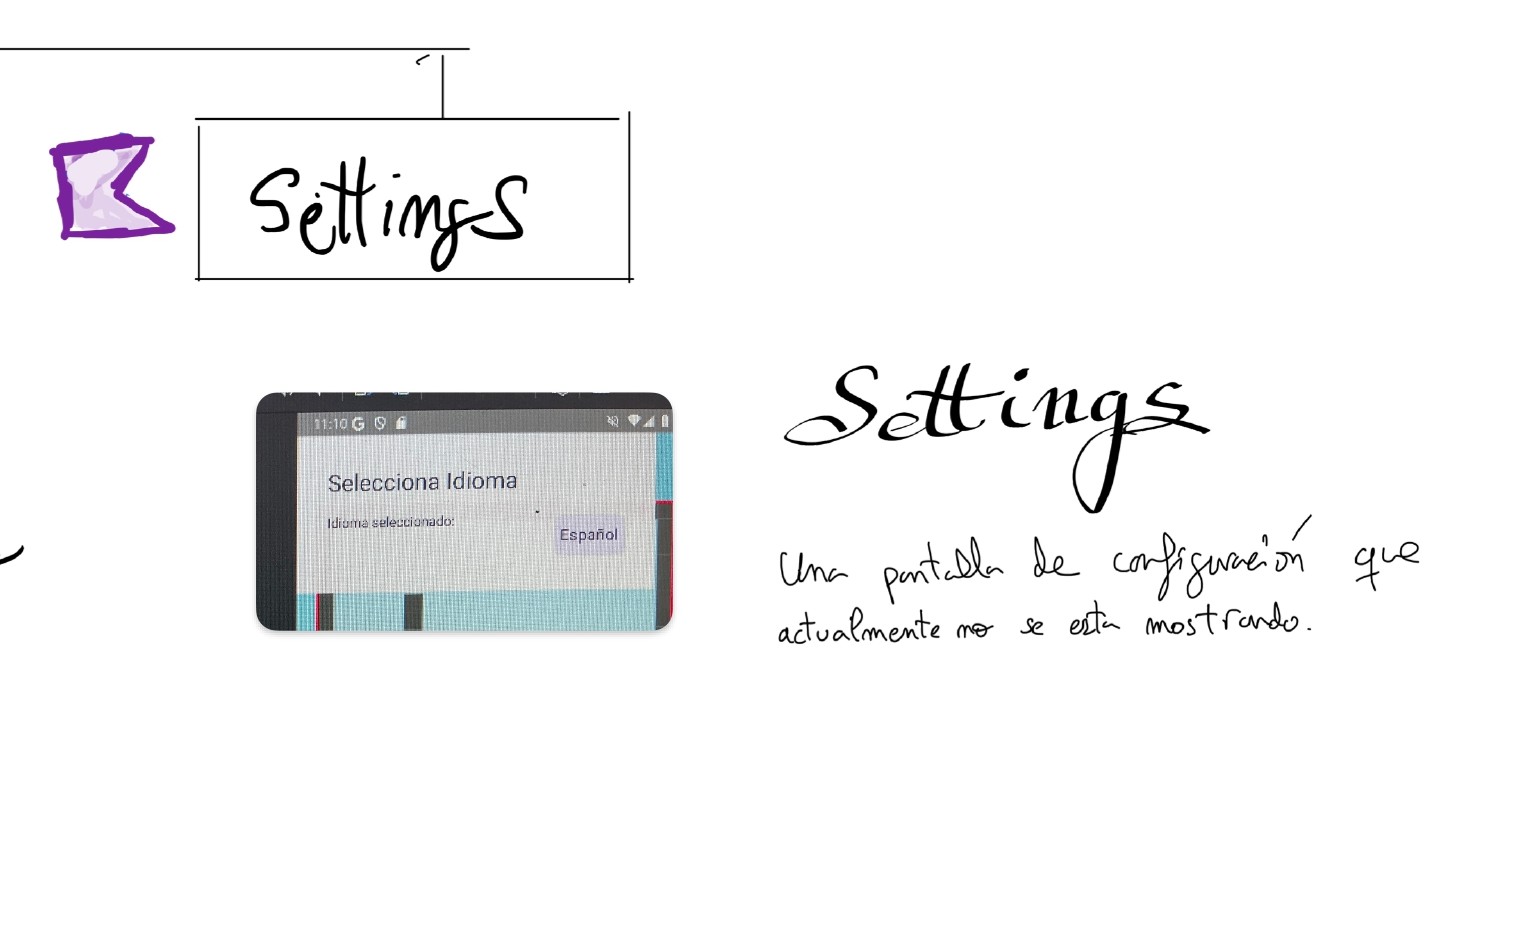 Settings
11:10
Selecciona Idioma
Idioma seleccionado:
Español
Settings
Una pantalla de configuración que
actualmente no se esta mostrando.